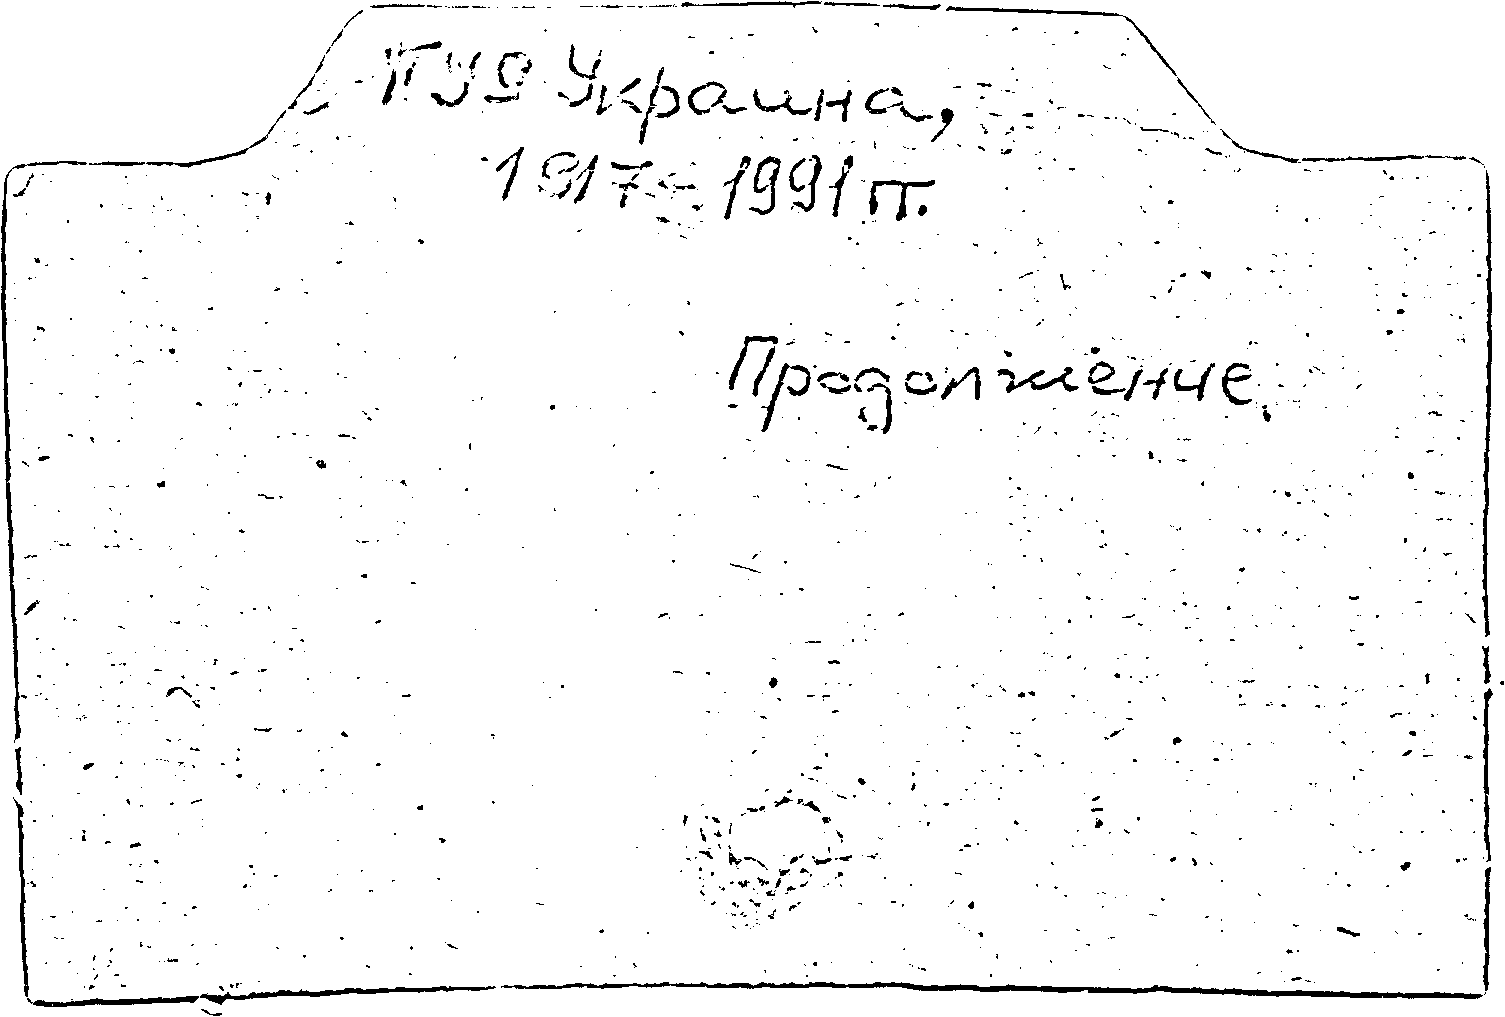 ПУ9 Украина,
1917-1991 гг.
Продолжение